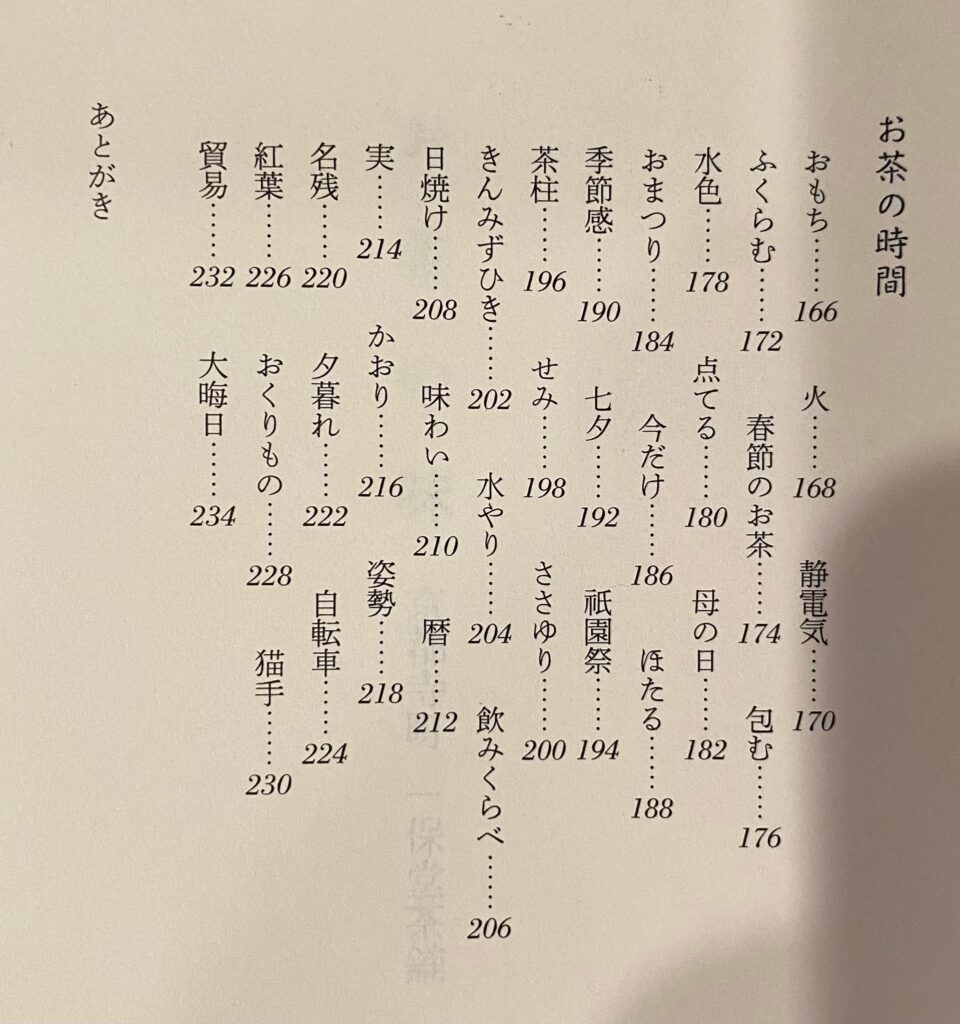 お茶の時間
おもち……166 火……168 静電気……170
ふくらむ……172 春節のお茶……174 包む……176
水色……178 点てる……180 母の日……182
おまつり……184 今だけ……186 ほたる……188
季節感……190 七夕……192 祇園祭……194
茶柱……196 せみ……198 ささゆり……200
きんみずひき……202 水やり……204 飲みくらべ……206
日焼け……208 味わい……210 暦……212
実……214 かおり……216 姿勢……218
名残……220 夕暮れ……222 自転車……224
紅葉……226 おくりもの……228 猫手……230
貿易……232 大晦日……234
あとがき